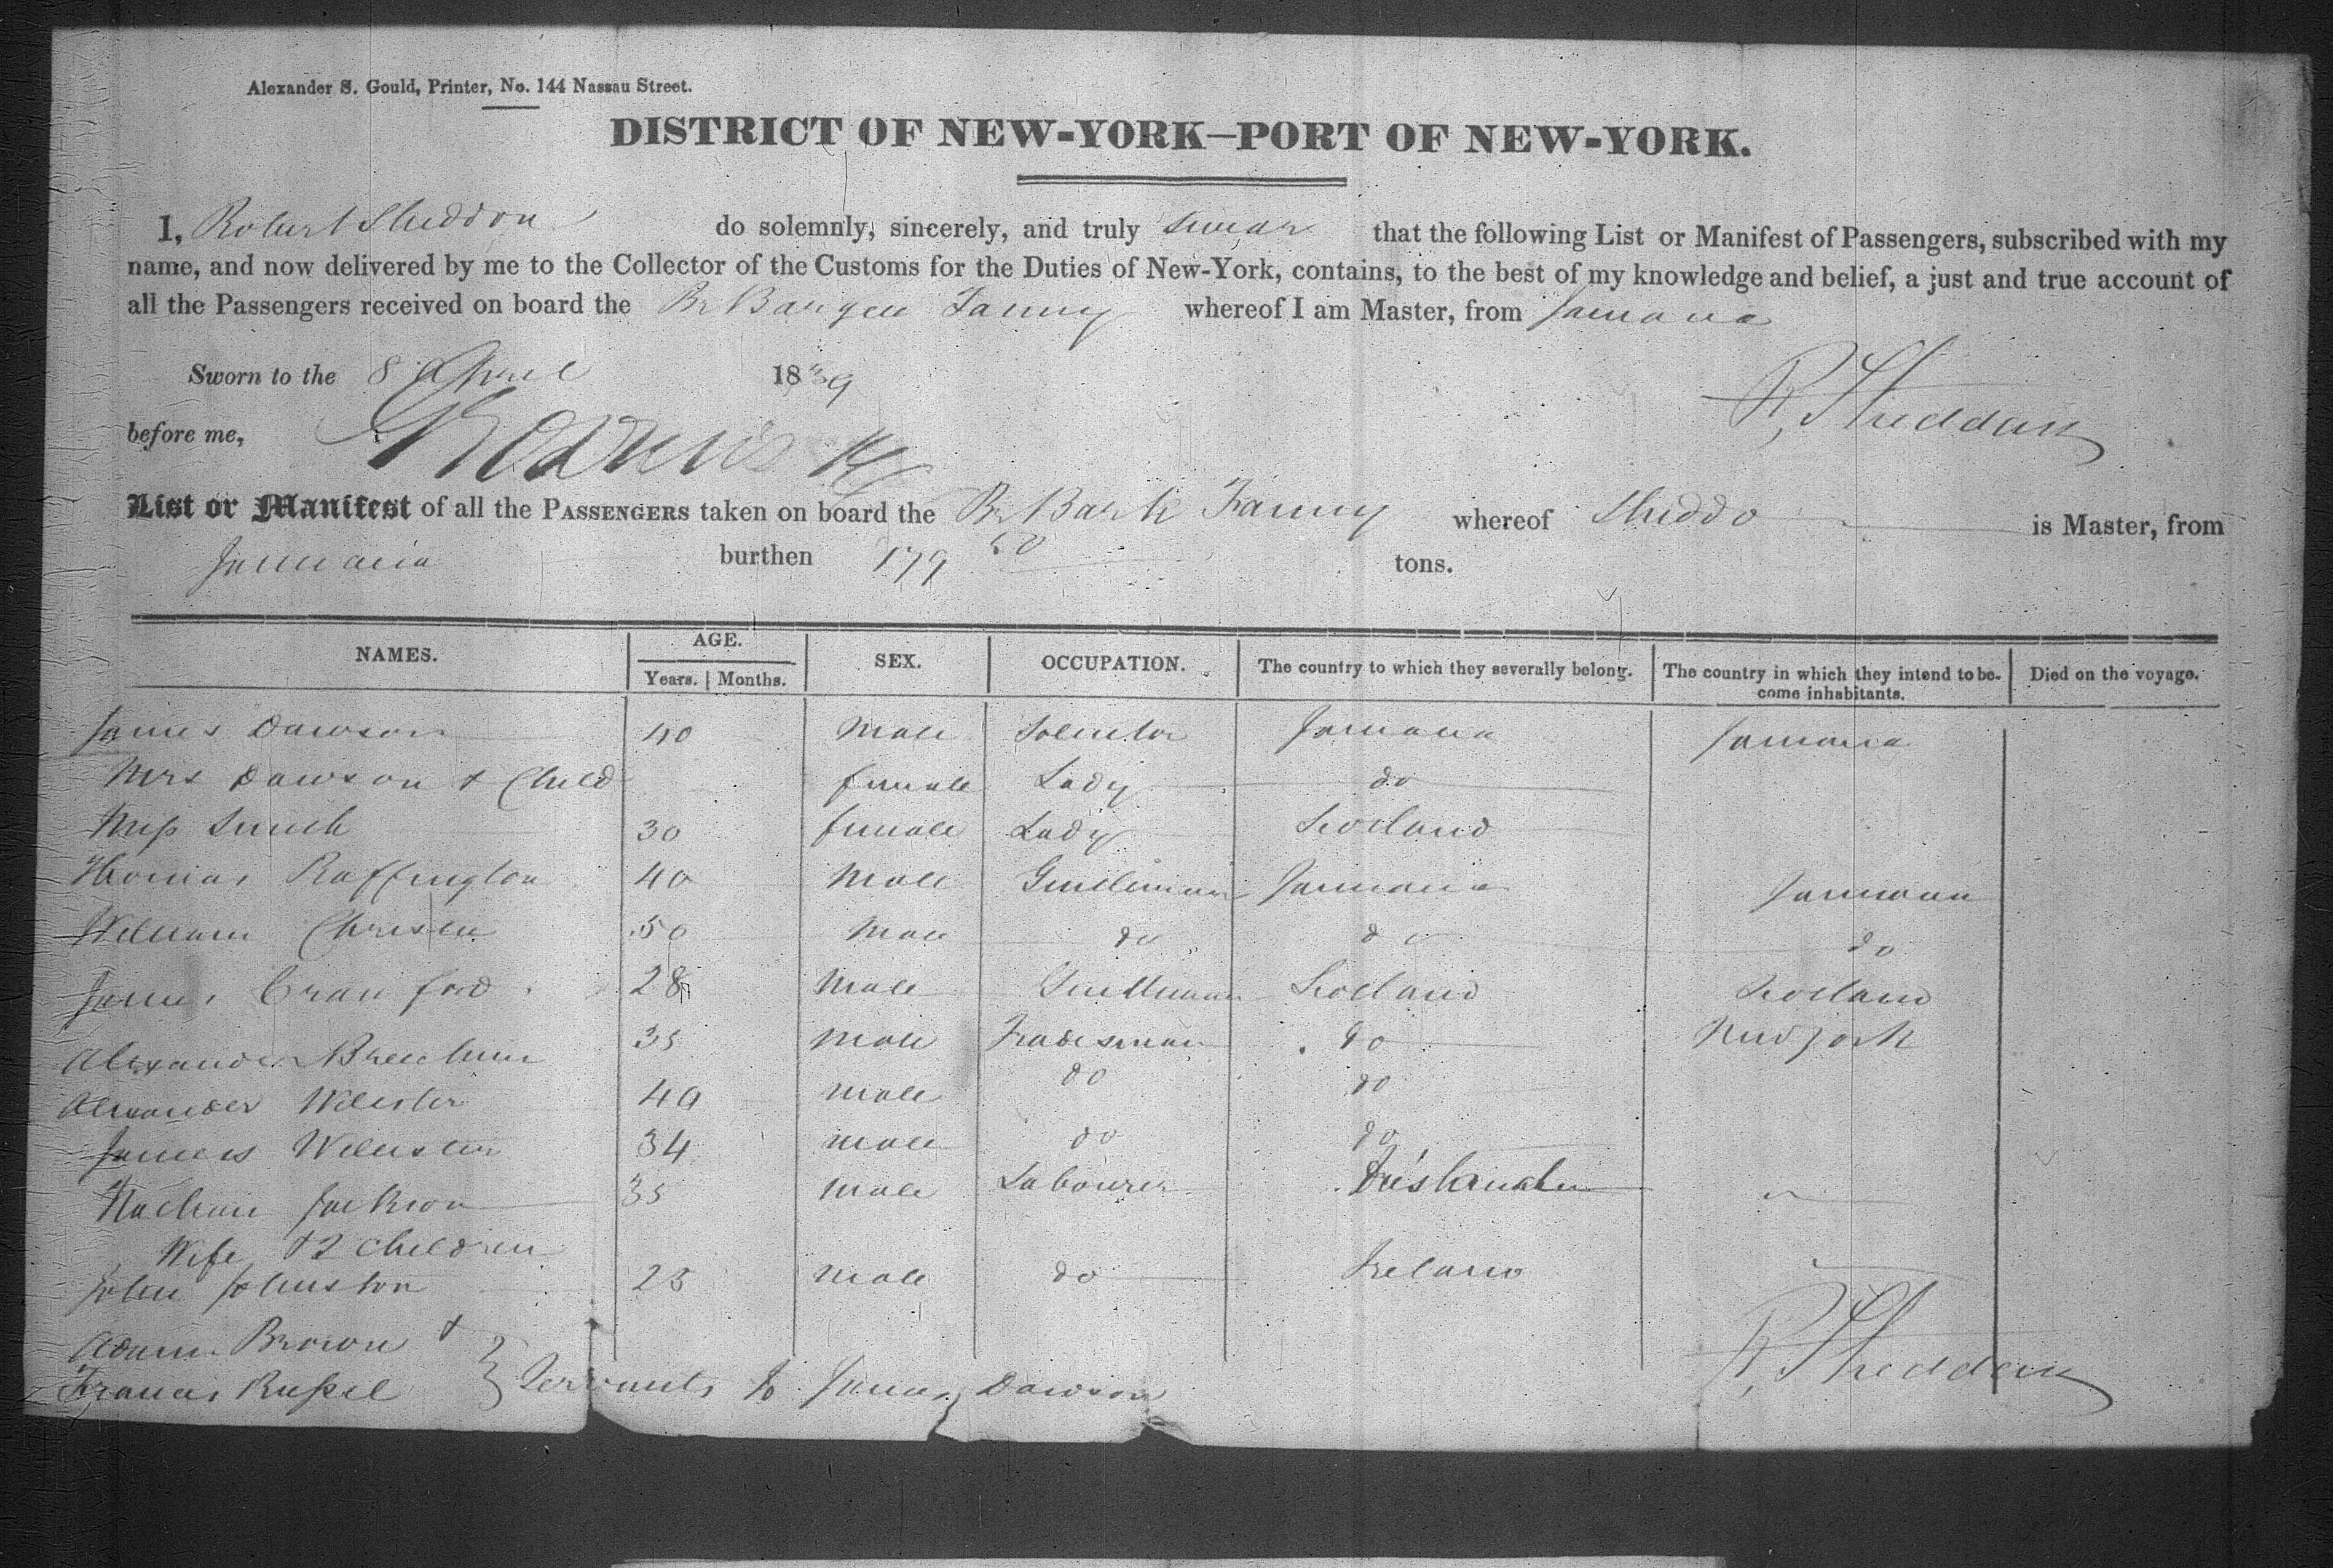 Alexander S. Gould, Printer, No. 144 Nassau Street.
DISTRICT OF NEW-YORK—PORT OF NEW-YORK.
I, Robert Sheddon do solemnly, sincerely, and truly swear that the following List or Manifest of Passengers, subscribed with my
name, and now delivered by me to the Collector of the Customs for the Duties of New-York, contains, to the best of my knowledge and belief, a just and true account of
all the Passengers received on board the Br Barque Fanny whereof I am Master, from Jamaica
Sworn to the 8 April 1839
R, Sheddan
before me,
List or Manifest of all the PASSENGERS taken on board the Br Bark Fanny whereof Sheddo is Master, from
Jamaica burthen 179 tons.
NAMES. AGE. Years. Months. SEX. OCCUPATION. The country to which they severally belong. The country in which they intend to become inhabitants. Died on the voyage.
James Dawson 40 Male Solicitor Jamaica Jamaica
Mrs Dawson & Child female Lady do
Miss 30 female Lady Scotland
Thomas Raffington 40 Male Gentleman Jamaica Jamaica
William 50 Male do do do
James Crawford 28 Male Gentleman Scotland Scotland
Alexander 35 Male Tradesman do New York
Alexander Webster 40 male do do
James 34 male do do
Nathan Jackson 35 male Labourer
Wife & 2 Children
John Johnston 25 male do Ireland
Adam Brown &
Francis Russel } Servants to James Dawson
R, Sheddan